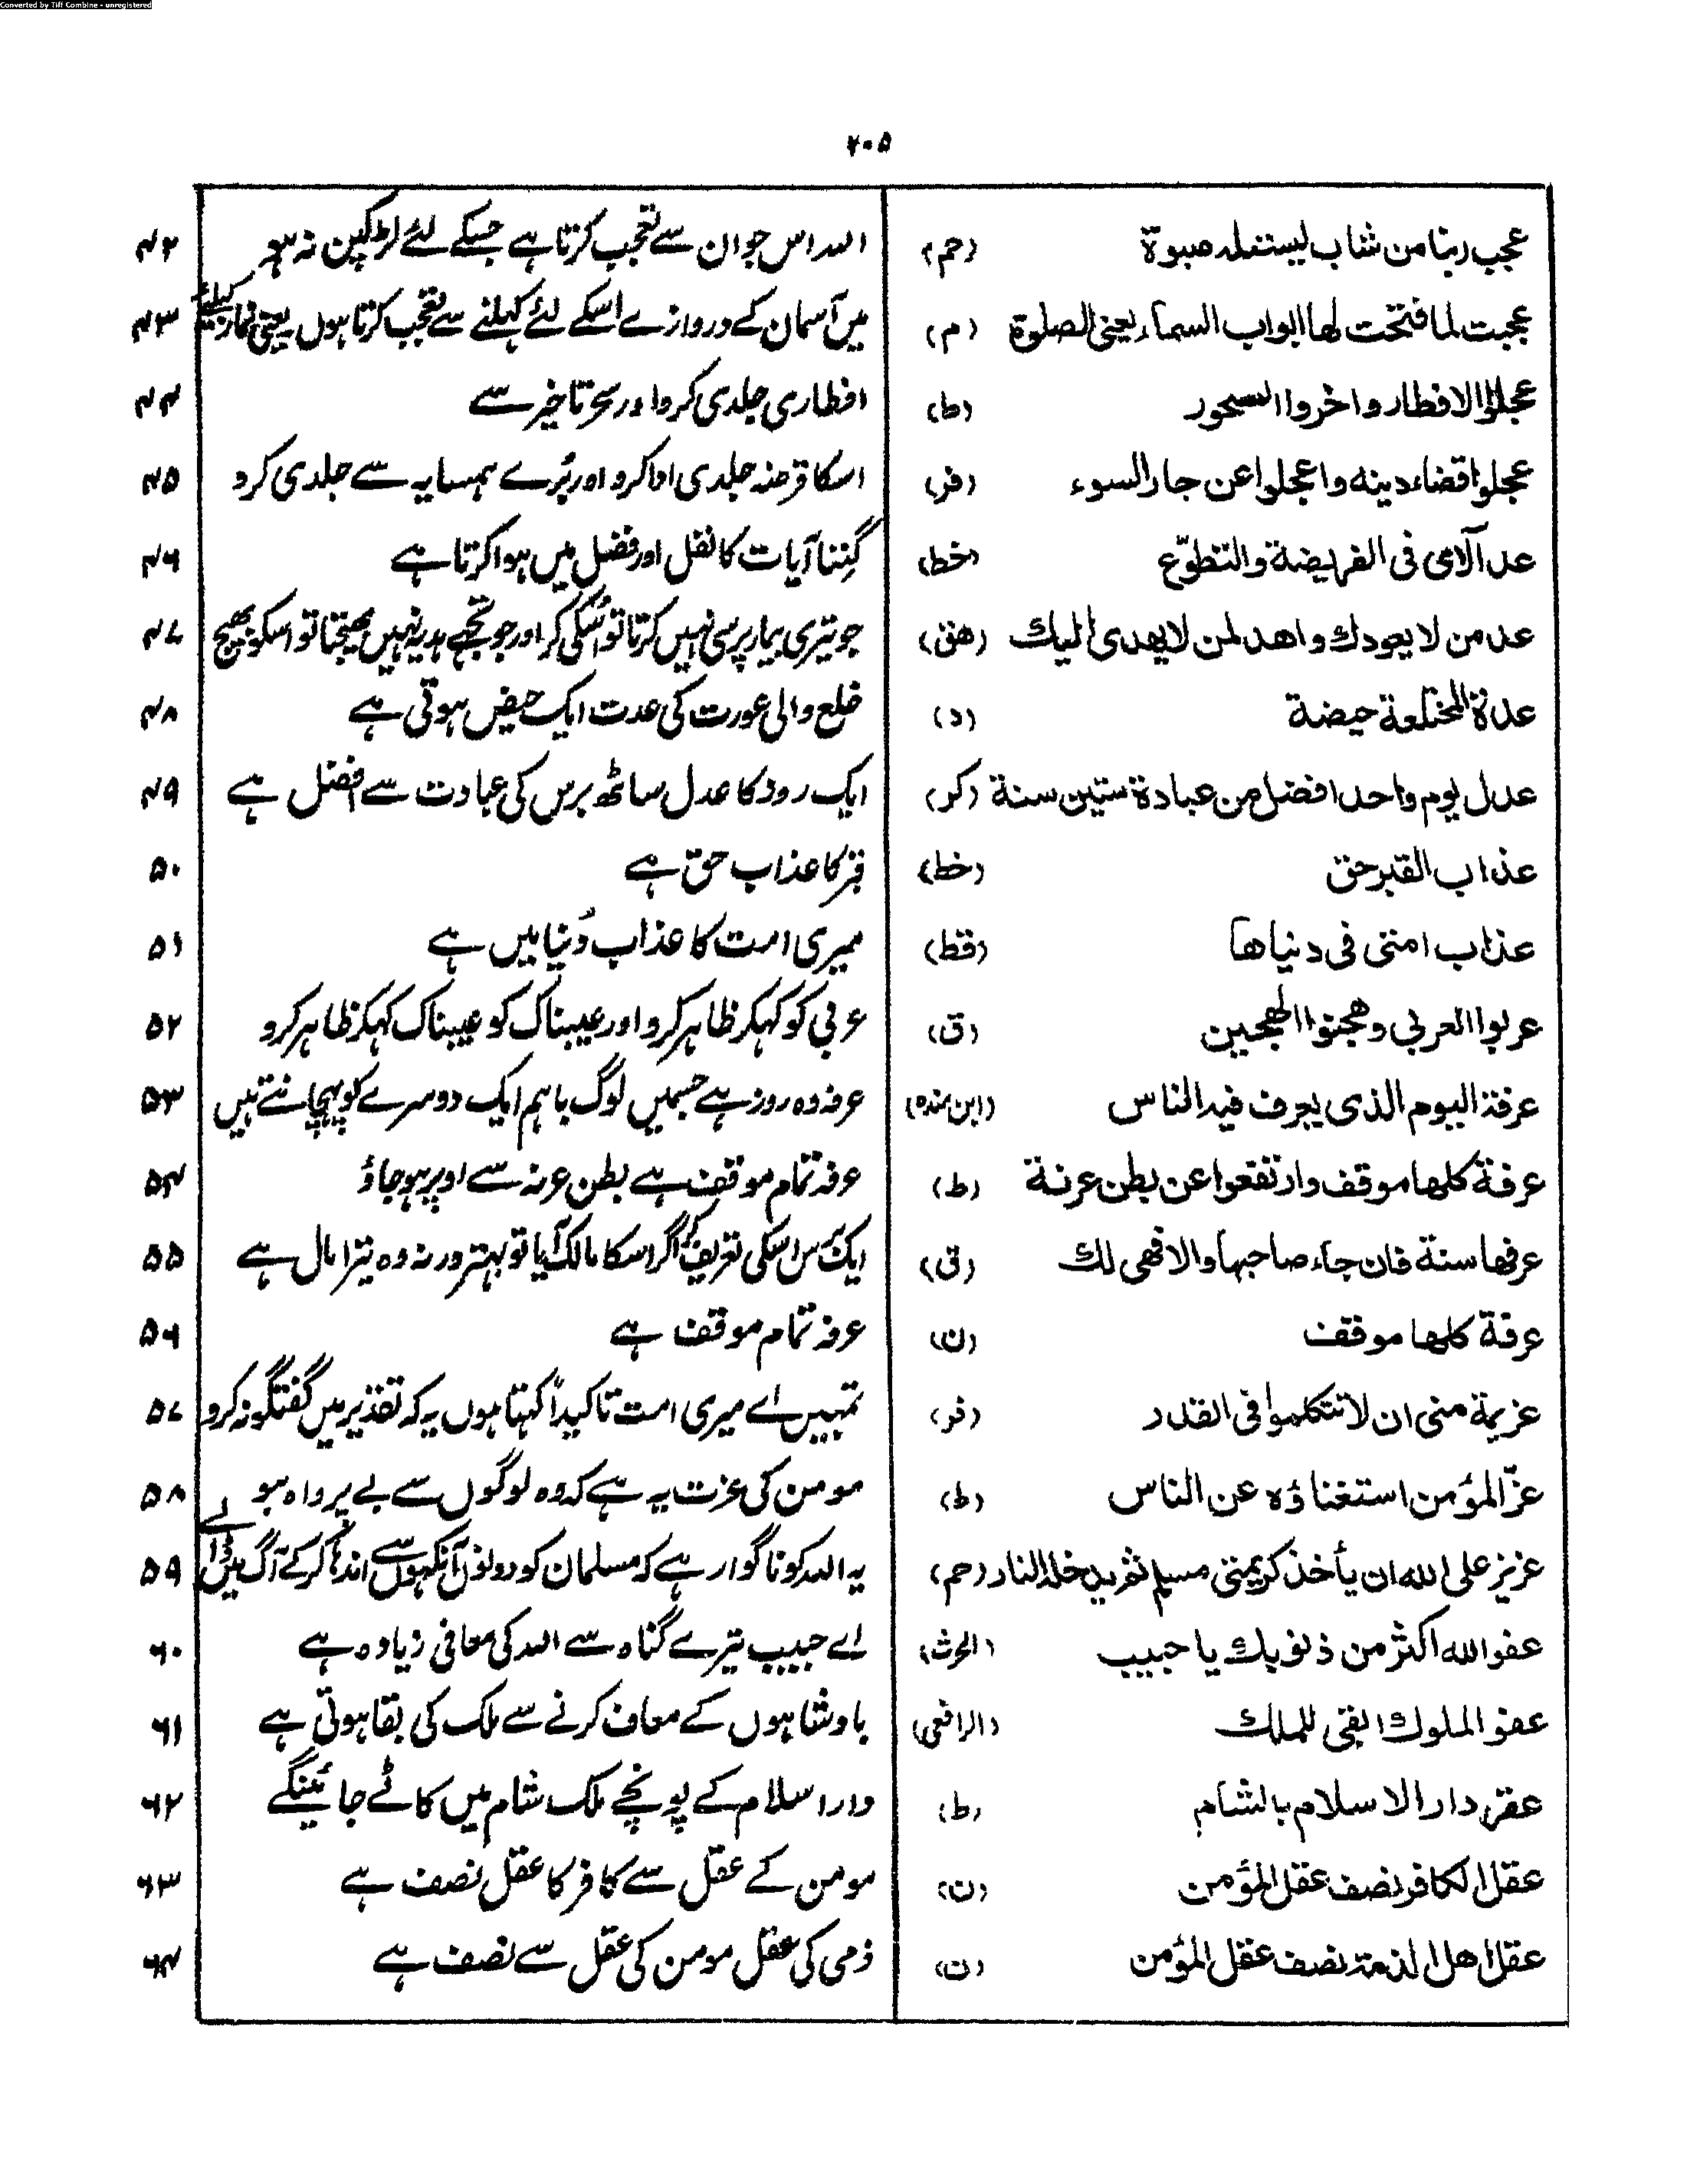 Converted by Tiff Combine - unregistered
۲۰۵
عجب ربنا من شاب ليست له صبوة (حم) اللہ اس جوان سے تعجب کرتا ہے جسکے لئے لڑکپن نہ ہو ۴۲
عجبت لما فتحت لها ابواب السماء يعنى الصلوة (م) میں آسمان کے دروازے اسکے لئے کہلنے سے تعجب کرتا ہوں یعنی نماز کیلئے ۴۳
عجلوا الافطار واخروا السحور (ط) افطاری جلدی کرو اور سحر تاخیر سے ۴۴
عجلوا قضاء دينه واعجلوا عن جار السوء (فر) اسکا قرضہ جلدی ادا کرو اور بُرے ہمسایہ سے جلدی کرو ۴۵
عد الآى فى الفريضة والتطوّع (خط) گِننا آیات کا نفل اور فضل میں ہوا کرتا ہے ۴۶
عد من لا يعودك واهد لمن لا يهدى اليك (هق) جو تیری بیمار پرسی نہیں کرتا تو اُسکی کر اور جو تجھے ہدیہ نہیں بھیجتا تو اسکو بھیج ۴۷
عدة المختلعة حيضة (د) خلع والی عورت کی عدت ایک حیض ہوتی ہے ۴۸
عدل يوم واحد افضل من عبادة ستين سنة (کر) ایک روز کا عدل ساٹھ برس کی عبادت سے افضل ہے ۴۹
عذاب القبر حق (خط) قبر کا عذاب حق ہے ۵۰
عذاب امتى فى دنياها (قط) میری امت کا عذاب دُنیا میں ہے ۵۱
عربوا العربى وهجنوا الهجين (ق) عربی کو کہکر ظاہر کرو اور عیبناک کو عیبناک کہکر ظاہر کرو ۵۲
عرفة اليوم الذى يعرف فيه الناس (ابن مندہ) عرفہ وہ روز ہے جسمیں لوگ باہم ایک دوسرے کو پہچانتے ہیں ۵۳
عرفة كلها موقف وارتفعوا عن بطن عرنة (ط) عرفہ تمام موقف ہے بطن عرنہ سے اوپر ہو جاؤ ۵۴
عرفها سنة فان جاء صاحبها والا فهى لك (ق) ایک برس اسکی تعریف کر اگر اسکا مالک آیا تو بہتر ورنہ وہ تیرا مال ہے ۵۵
عرفة كلها موقف (ن) عرفہ تمام موقف ہے ۵۶
عزيمة منى ان لا تتكلموا فى القدر (فر) تمہیں اے میری امت تاکیداً کہتا ہوں یہ کہ تقدیر میں گفتگو نہ کرو ۵۷
عزّ المؤمن استغناؤه عن الناس (ط) مومن کی عزت یہ ہے کہ وہ لوگوں سے بے پرواہ ہو ۵۸
عزيز على الله ان يأخذ كريمتى مسلم ثم يدخله النار (حم) یہ اللہ کو ناگوار ہے کہ مسلمان کو دونوں آنکہوں سے اندہا کرکے آگ میں ڈالے ۵۹
عفو الله اكثر من ذنوبك يا حبيب (الحرث) اے حبیب تیرے گناہ سے اللہ کی معافی زیادہ ہے ۶۰
عفو الملوك ابقى للملك (الرافعی) بادشاہوں کے معاف کرنے سے ملک کی بقا ہوتی ہے ۶۱
عقر دار الاسلام بالشام (ط) دار اسلام کے پونچے ملک شام میں کاٹے جائینگے ۶۲
عقل الكافر نصف عقل المؤمن (ن) مومن کے عقل سے کافر کا عقل نصف ہے ۶۳
عقل اهل الذمة نصف عقل المؤمن (ن) ذمی کی عقل مومن کی عقل سے نصف ہے ۶۴